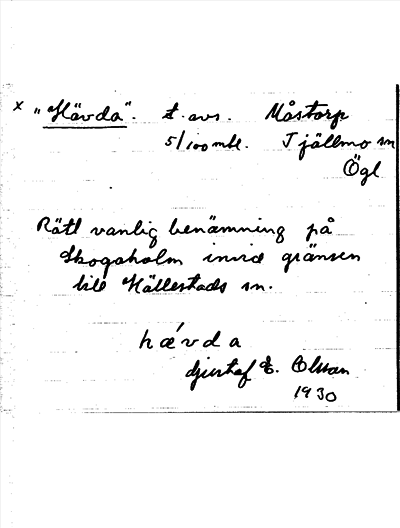 x "Hävda". t. avs. Måstorp
5/100 mtl. Tjällmo sn
Ögl
Rätt vanlig benämning på
Skogaholm invid gränsen
till Hällestads sn.
hævda
Gustaf E. Olsson
1930